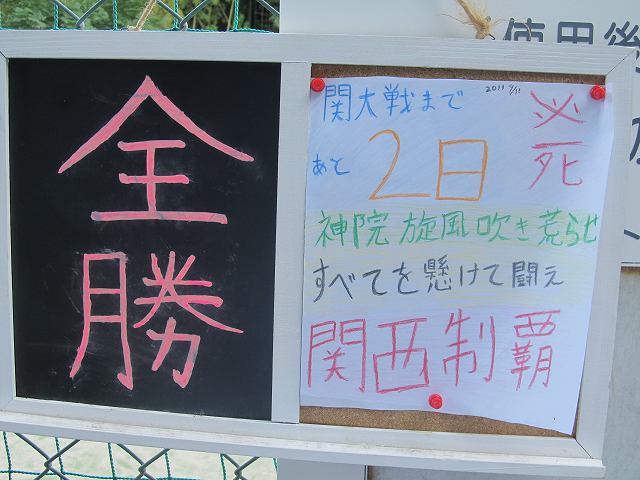 使用後
全勝
関大戦まで
2011 7/11
必死
あと
2日
神院旋風吹き荒らせ
すべてを懸けて闘え
関西制覇